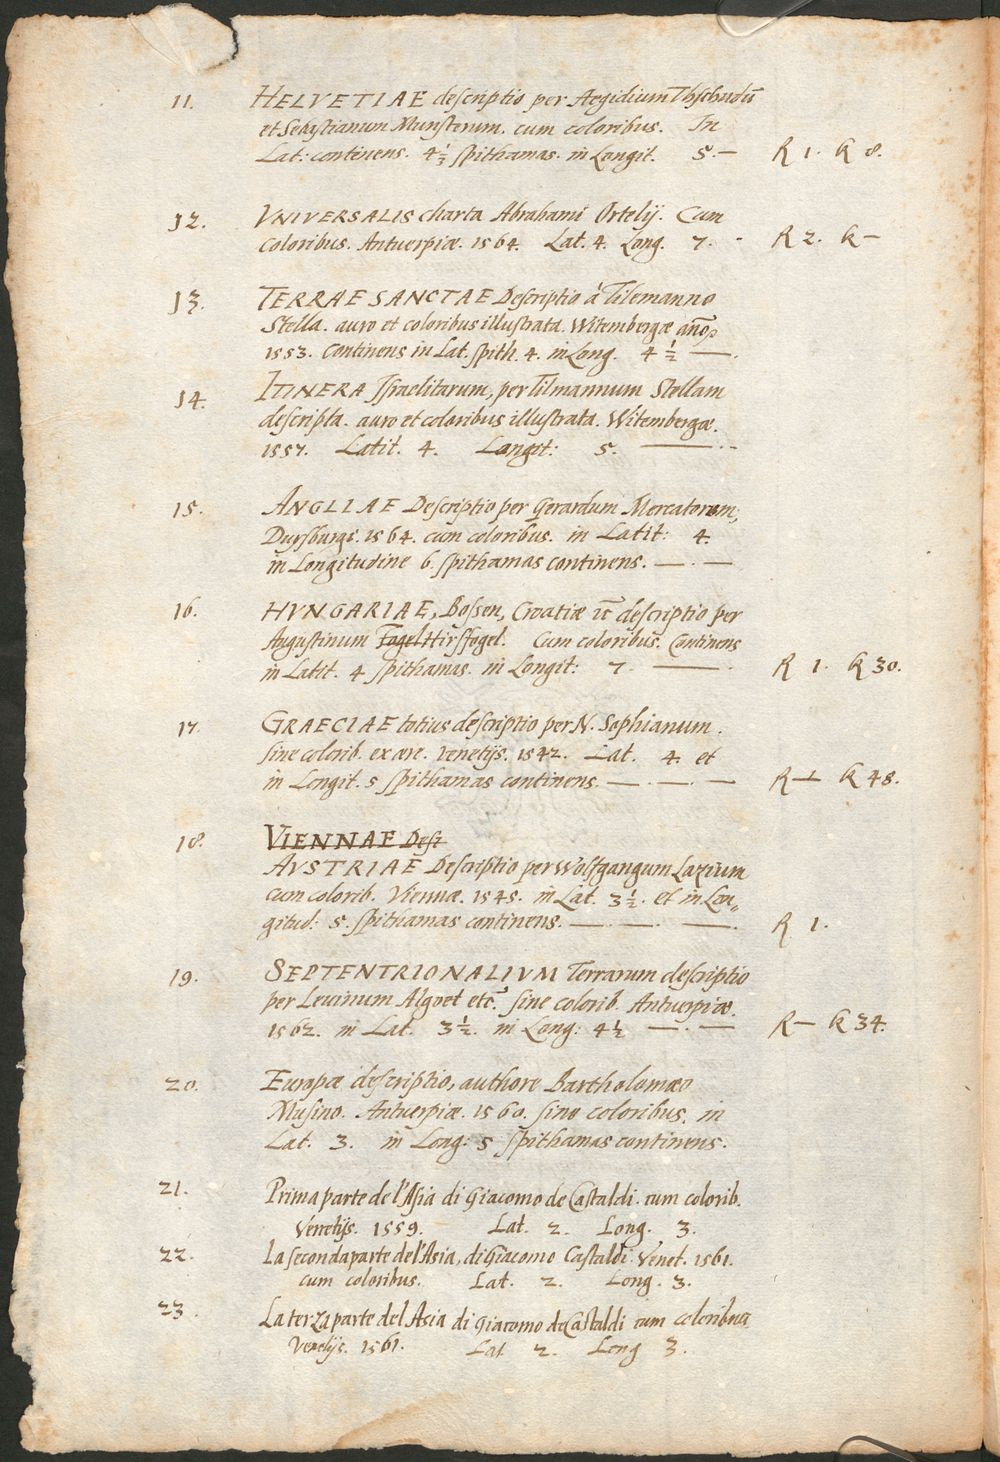 11. HELVETIAE descriptio per Aegidium Thschudū
et Sebastianum Munsterum. cum coloribus. In
Lat: continens. 4 1/3 spithamas. in Longit. 5.— R 1. K 8.
12. VNIVERSALIS charta Abrahami Ortelij. Cum
coloribus. Antuerpiæ. 1564. Lat. 4. Long. 7. - R 2. K —
13. TERRAE SANCTAE Descriptio à Tilemanno
Stella. auro et coloribus illustrata. Witembergæ año
1553. Continens in Lat. spith. 4. in Long. 4 1/2 —.
14. ITINERA Israelitarum, per Tilmannum Stellam
descripta. auro et coloribus illustrata. Witembergæ.
1557. Latit. 4. Longit: 5. —
15. ANGLIAE Descriptio per Gerardum Mercatorem,
Duysburgi. 1564. cum coloribus. in Latit: 4.
in Longitudine 6. spithamas continens. —.—
16. HVNGARIAE, Bossen, Croatiæ ec̄ descriptio per
Augustinum Fogel Hirsfogel. Cum coloribus. Continens
in Latit. 4 spithamas. in Longit: 7. — R 1. K 30.
17. GRAECIAE totius descriptio per N. Sophianum.
sine colorib. ex ære. Venetijs. 1542. Lat. 4. et
in Longit. 5 spithamas continens. —.—.— R — K 48.
18. VIENNAE Desc
AVSTRIAE Descriptio per Wolfgangum Lazium
cum colorib. Viennæ. 1545. in Lat. 3 1/2. et in Lon„
gitud: 5. spithamas continens. —.—.—. R 1.
19. SEPTENTRIONALIVM Terrarum descriptio
per Leuinum Algoet etc. sine colorib. Antuerpiæ.
1562. in Lat. 3 1/2. in Long: 4 1/2 —.— R — K 34.
20. Europæ descriptio, authore Bartholomæo
Musino. Antuerpiæ. 1560. sine coloribus. in
Lat. 3. in Long: 5 spithamas continens.
21. Prima parte de l'Asia di Giacomo de Castaldi. cum colorib.
Venetijs. 1559. Lat. 2. Long. 3.
22. La seconda parte de l'Asia, di Giacomo Castaldi. Venet. 1561.
cum coloribus. Lat. 2. Long. 3.
23. La terza parte del Asia di Giacomo de Castaldi cum coloribus
Venetijs. 1561. Lat. 2. Long 3.